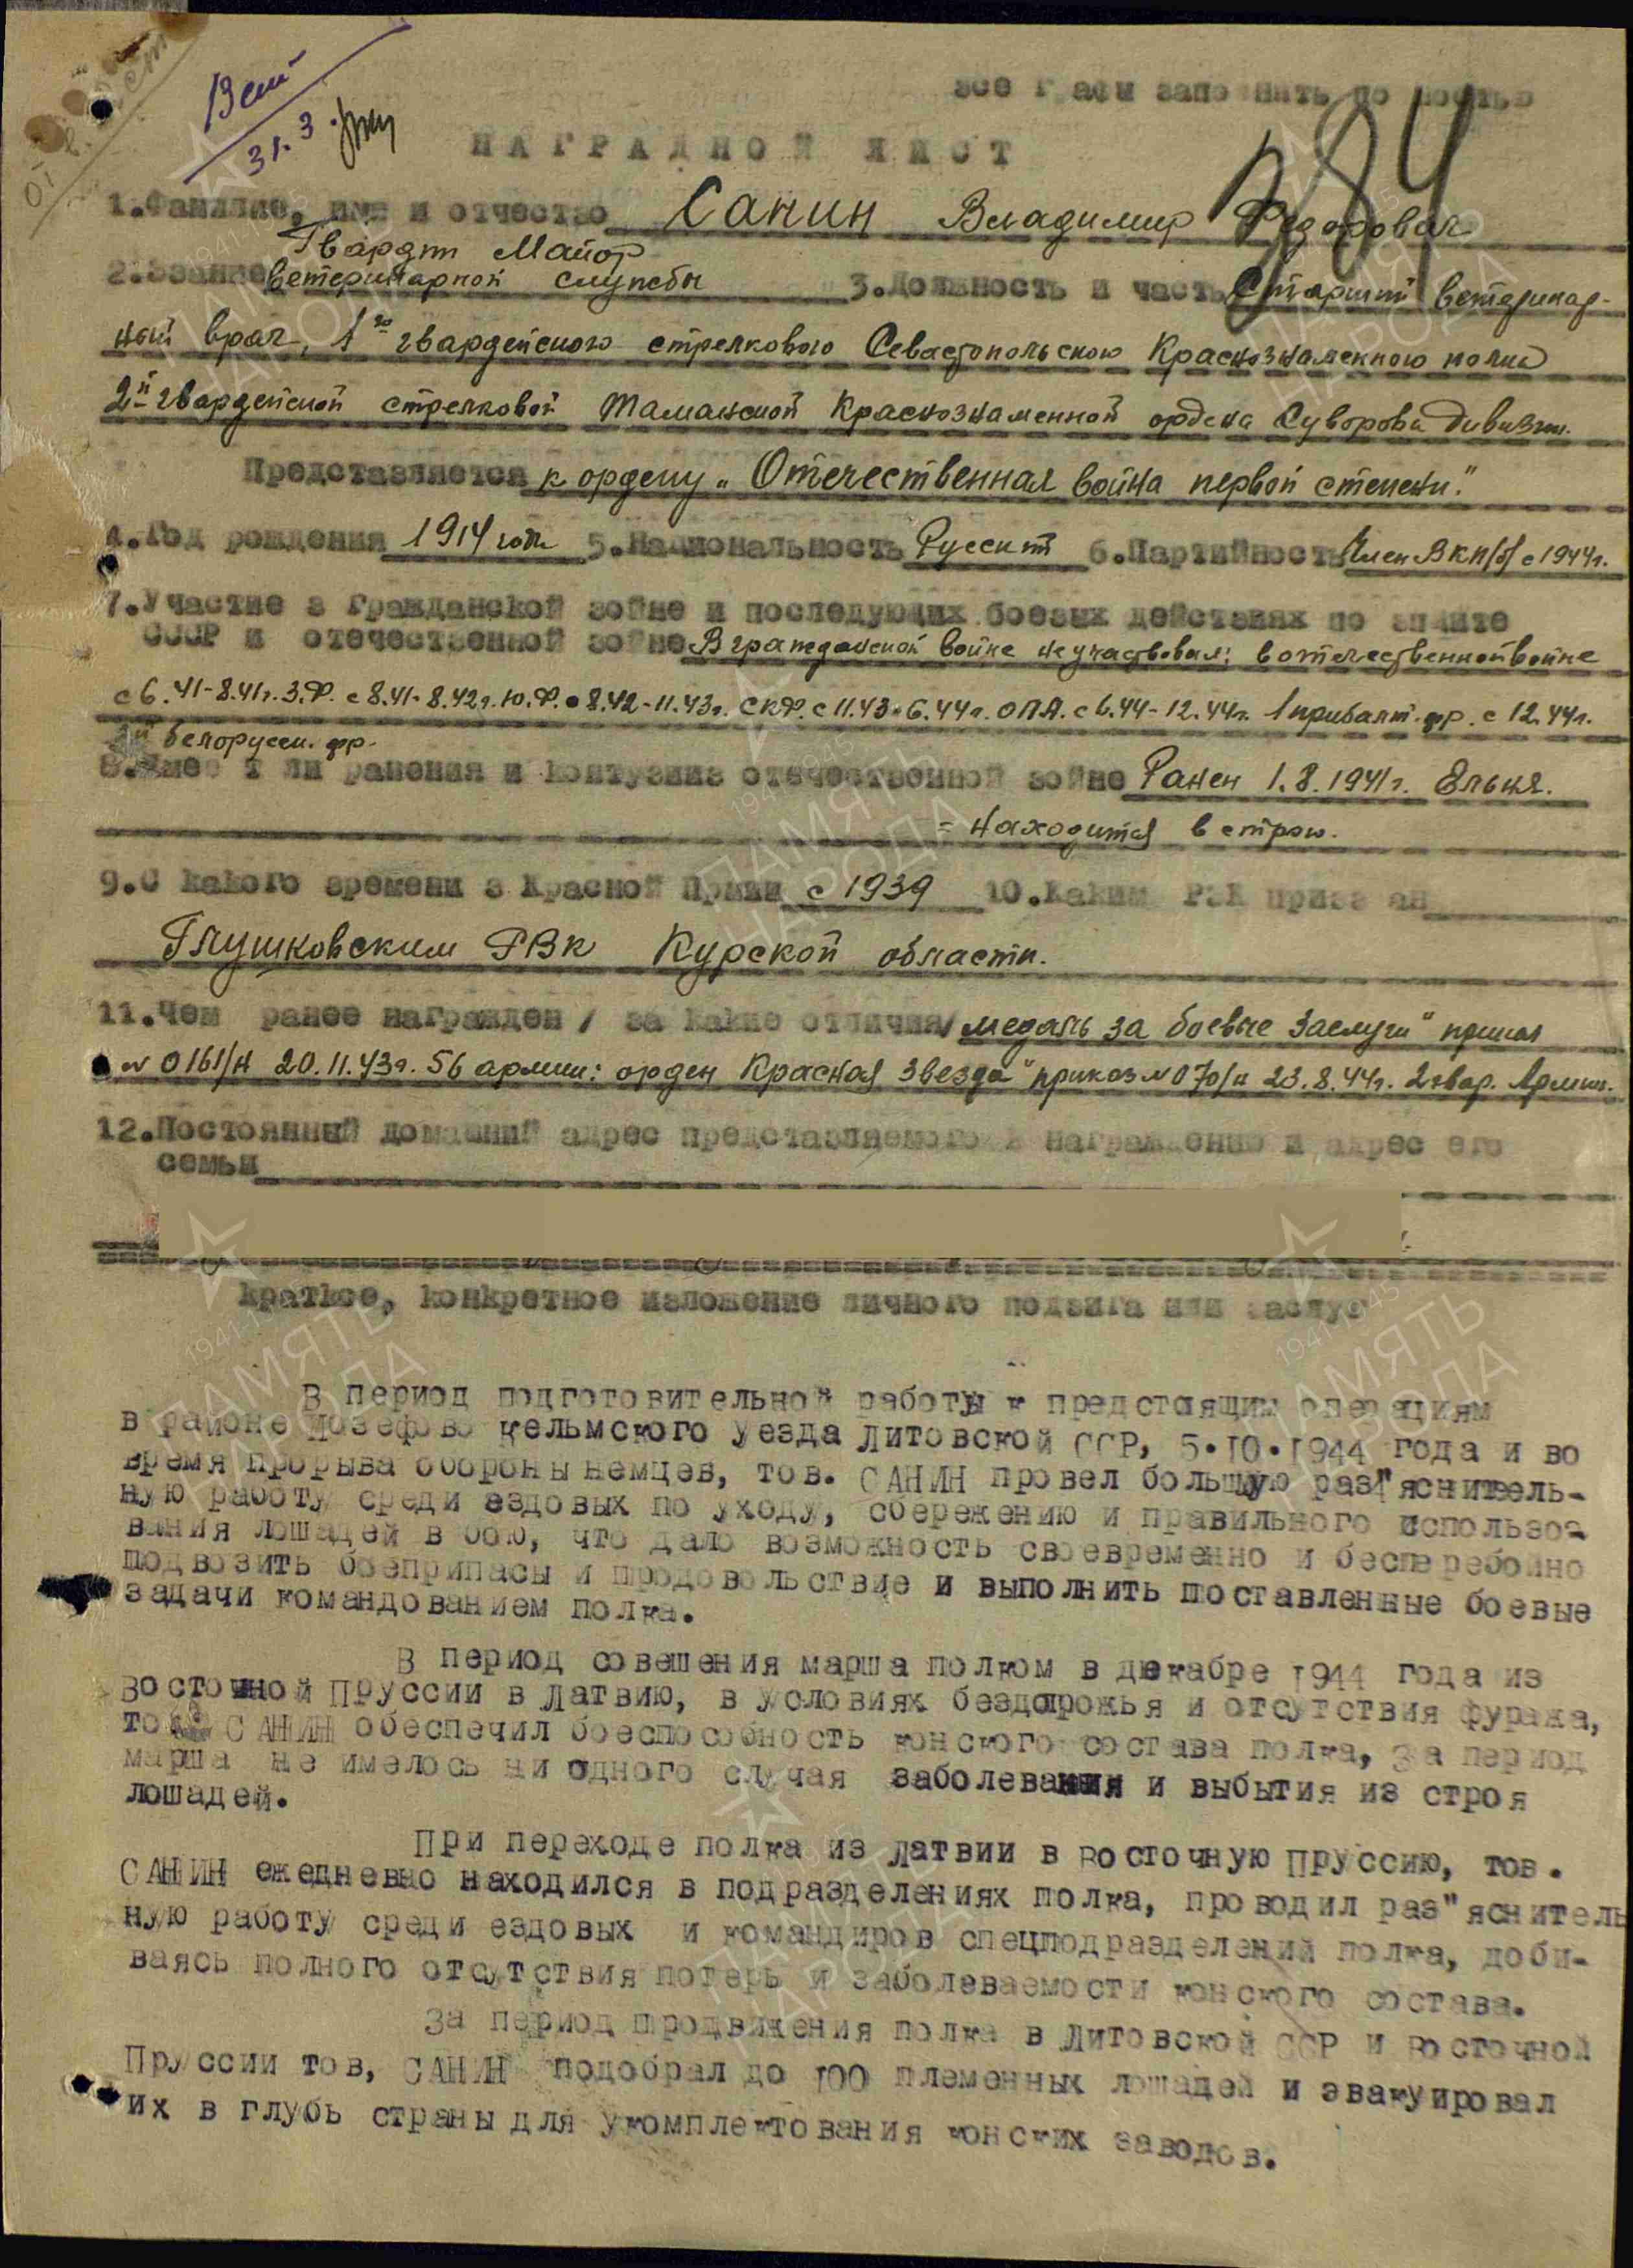 Вет
31.3.
все графы заполнять полностью
184
НАГРАДНОЙ ЛИСТ
1.Фамилие, имя и отчество Санин Владимир Федорович
Гвардии Майор
2.Звание ветеринарной службы 3.Должность и часть Старший ветеринар-
ный врач, 1го гвардейского стрелкового Севастопольского Краснознаменного полка
2й гвардейской стрелковой Таманской Краснознаменной ордена Суворова Дивизии.
Представляется к ордену „Отечественная война первой степени."
4.Год рождения 1914 года 5.Национальность Русский 6.Партийность Член ВКП/б/ с 1944г.
7.Участие в гражданской войне и последующих боевых действиях по защите
СССР и отечественной войне В гражданской войне не участвовал; в отечественной войне
с 6.41-8.41г. З.Ф. с 8.41-8.42г. Ю.Ф. с 8.42-11.43г. СКФ. с 11.43-6.44г. ОПА. с 6.44-12.44г. 1 прибалт. фр. с 12.44г.
3й белорусск. фр.
8.Имеет ли ранения и контузиив отечественной войне Ранен 1.8.1941г. Ельня.
= находится в строю.
9.С какого времени в Красной Армии с 1939 10.Каким РВК призван
Глушковским РВК Курской области.
11.Чем ранее награжден / за какие отличия/ медаль за боевые заслуги" приказ
№ 0161/н 20.11.43г. 56 армии: орден Красная Звезда" приказ №070/н 23.8.44г. 2 гвар. Армии.
12.Постоянный домашний адрес представляемого к награждению и адрес его
семьи
краткое, конкретное изложение личного подвига или заслуг
В период подготовительной работы к предстоящим операциям
в районе Иозефово Кельмского уезда Литовской ССР, 5.10.1944 года и во
время прорыва обороны немцев, тов. САНИН провел большую раз"яснитель-
ную работу среди ездовых по уходу, сбережению и правильного использо-
вания лошадей в бою, что дало возможность своевременно и бесперебойно
подвозить боеприпасы и продовольствие и выполнить поставленные боевые
задачи командованием полка.
В период совешения марша полком в декабре 1944 года из
Восточной Пруссии в Латвию, в условиях бездорожья и отсутствия фуража,
тов. САНИН обеспечил боеспособность конского состава полка, за период
марша не имелось ни одного случая заболевания и выбытия из строя
лошадей.
При переходе полка из Латвии в Восточную Пруссию, тов.
САНИН ежедневно находился в подразделениях полка, проводил раз"яснитель
ную работу среди ездовых и командиров спецподразделений полка, доби-
ваясь полного отсутствия потерь и заболеваемости конского состава.
За период продвижения полка в Литовской ССР и Восточной
Пруссии тов, САНИН подобрал до 100 племенных лошадей и эвакуировал
их в глубь страны для укомплектования конских заводов.